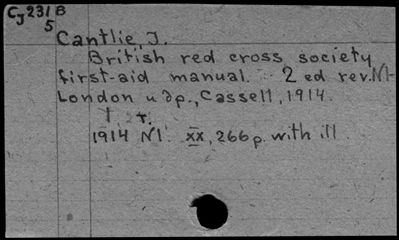 CJ231B
5
Cantlie, J.
British red cross society
first-aid manual. 2 ed rev. N1-
London u.ap., Cassell, 1914.
1914 N1 xx, 266p. with ill